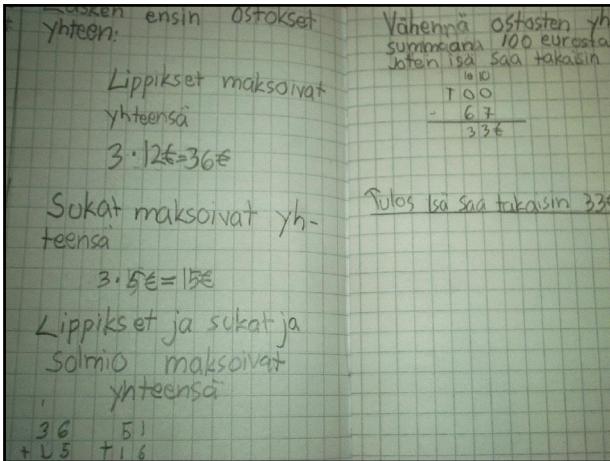 Lasken ensin ostokset
yhteen:
Lippikset maksoivat
yhteensä
3·12€=36€
Sukat maksoivat yh-
teensä
3·5€=15€
Lippikset ja sukat ja
solmio maksoivat
yhteensä
36 51
+15 +16
Vähennä ostosten yh
summaana 100 eurosta
Joten isä saa takaisin
10 10
100
- 67
33€
Tulos isä saa takaisin 33€